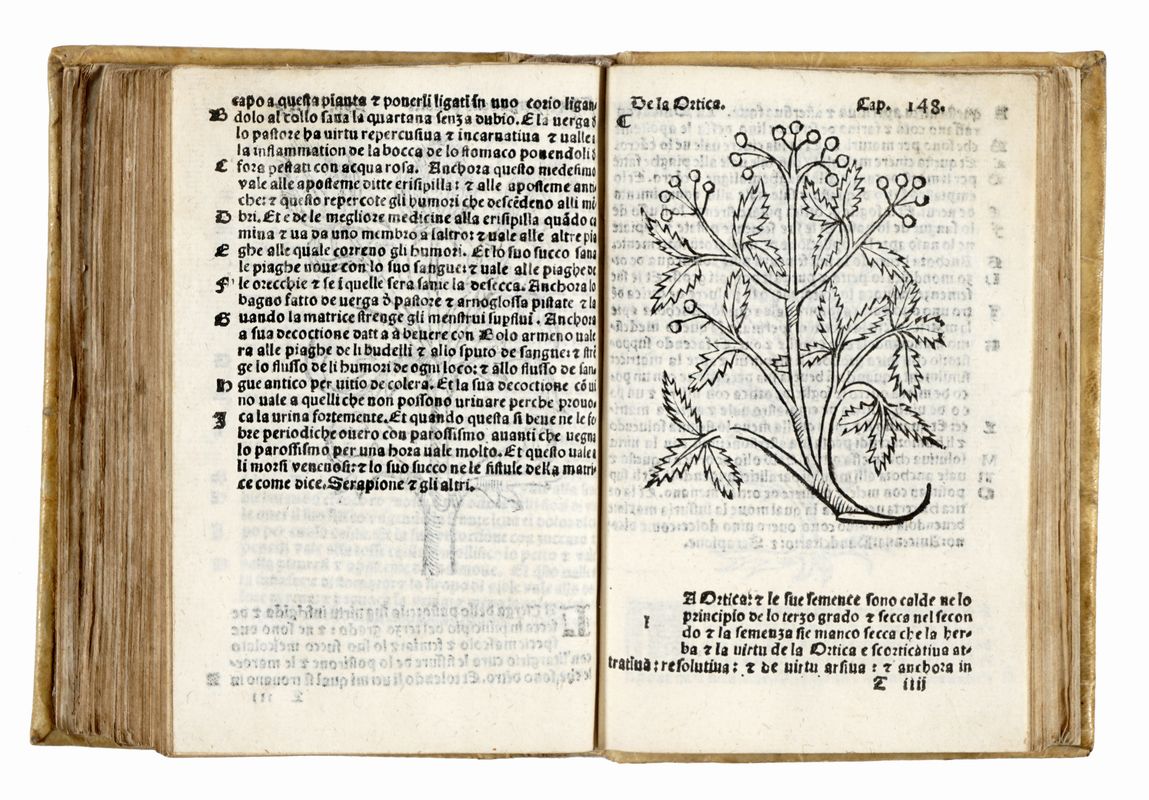 capo a questa pianta ⁊ ponerli ligati in uno corio ligan
B dolo al collo sana la quartana senza dubio. E la uerga
lo pastore ha virtu repercusiua ⁊ incarnatiua ⁊ ualle
la inflammation de la bocca de lo stomaco ponendoli
C fora pestati con acqua rosa. Anchora questo medesimo
vale alle aposteme ditte erisipilla: ⁊ alle aposteme anti
che: ⁊ questo repercote gli humori che descēdeno alli mi
D bri. Et e de le megliore medicine alla erisipilla quādo ca
mina ⁊ ua da uno membro a laltro: ⁊ uale alle altre pia
E ghe alle quale correno gli humori. Et lo suo succo sana
le piaghe noue con lo suo sangue: ⁊ uale alle piaghe de
F le orecchie ⁊ se i quelle sera sanie la desecca. Anchora lo
bagno fatto de uerga d̄ pastore ⁊ arnoglossa pistate ⁊ la
G uando la matrice strenge gli menstrui supflui. Anchora
a sua decoctione datta a beuere con Bolo armeno uale
ra alle piaghe de li budelli ⁊ allo sputo de sangue: ⁊ stri
ge lo flusso de li humori de ogni loco: ⁊ allo flusso de san
H gue antico per uitio de colera. Et la sua decoctione cō ui
no uale a quelli che non possono urinare perche prouo
I ca la urina fortemente. Et quando questa si beue ne le fe
bre periodiche ouero con parossismo auanti che uegna
lo parossismo per una hora uale molto. Et questo uale
li morsi venenosi: ⁊ lo suo succo ne le fistule della matri
ce come dice. Serapione ⁊ gli altri.
De la Ortica. Cap. 148.
A Ortica: ⁊ le sue semence sono calde ne lo
principio de lo terzo grado ⁊ secca nel secon
l do ⁊ la semenza sie manco secca che la her
ba ⁊ la uirtu de la Ortica e scorticatiua at-
tratiua: resolutiua: ⁊ de uirtu arsiua: ⁊ anchora in
T iiij